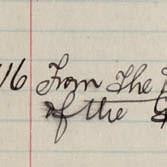 16 From The
of the